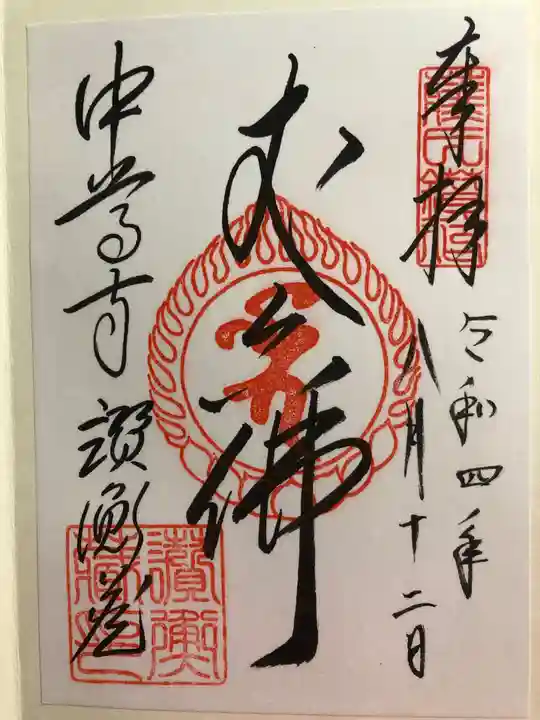 奉拝
令和四年
八月十二日
丈六佛
中尊寺 讃衡蔵
讃衡蔵